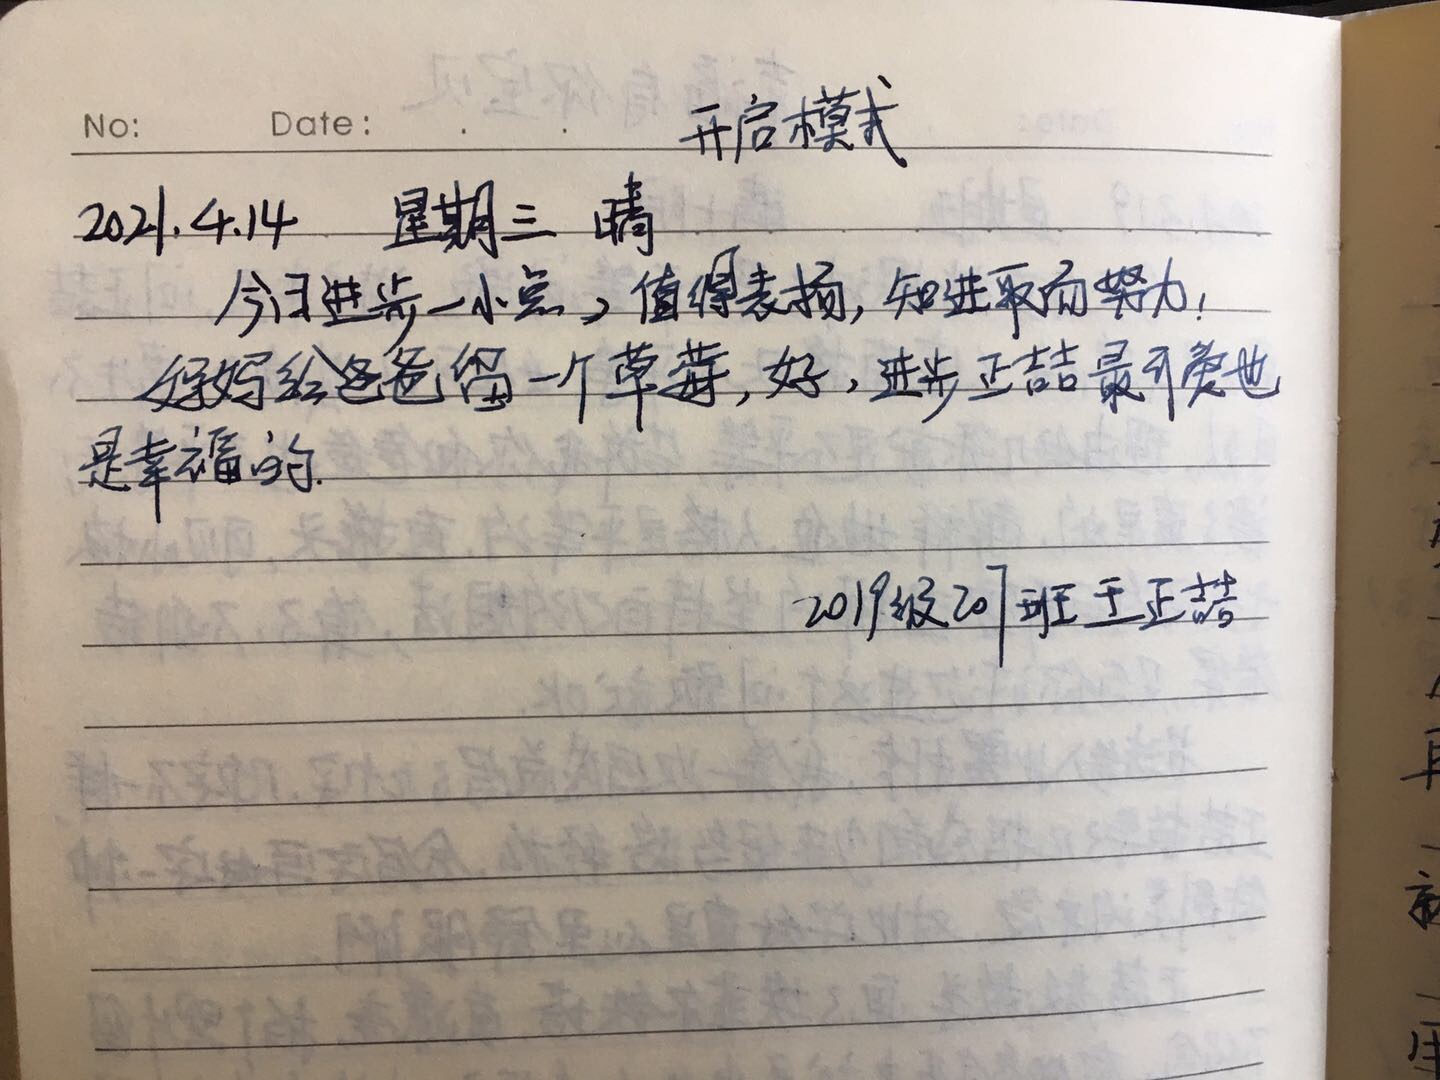 开启模式
No: Date: . .
2021.4.14 星期三 晴
今日进步一小点，值得表扬，知进取而努力！
妈妈给爸爸留一个草莓，好，进步正喆最开爽也
是幸福的.
2019级207班王正喆